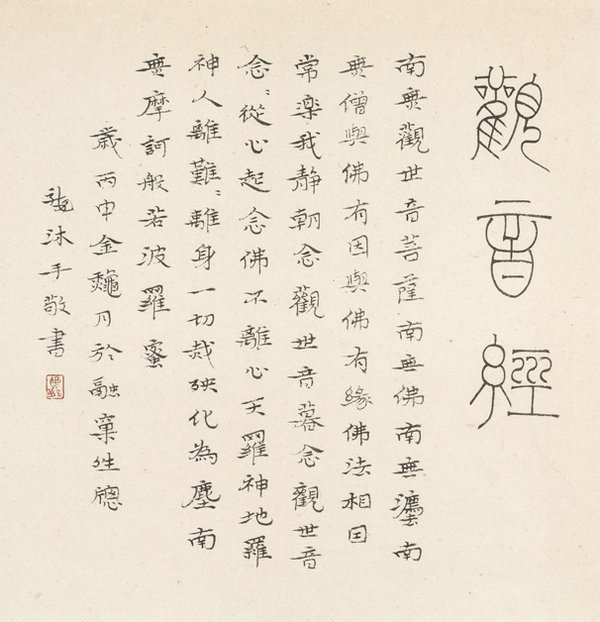 觀音經
南無觀世音菩薩南無佛南無灋南
無僧與佛有因與佛有緣佛法相因
常楽我靜朝念觀世音暮念觀世音
念〻從心起念佛不離心天羅神地羅
神人離難〻離身一切烖殃化為塵南
無摩訶般若波羅蜜
歲丙申金龝月於融性牕
沐手敬書